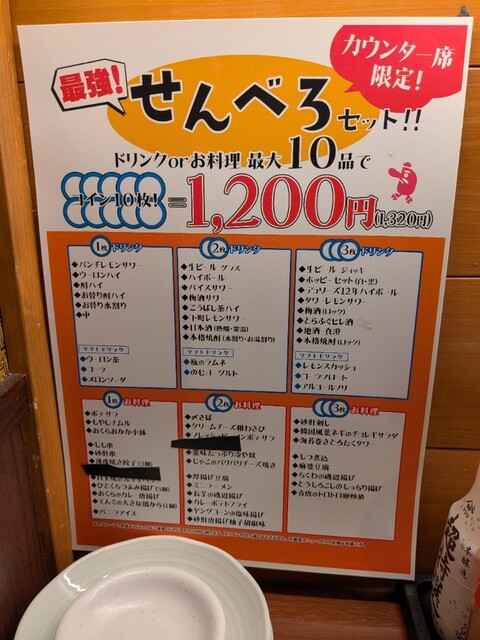 カウンター席
限定!
最強!
せんべろセット!!
ドリンクorお料理 最大10品で
コイン10枚!=1,200円(1,320円)
1枚 ドリンク
◆パンチレモンサワー
◆ウーロンハイ
◆酎ハイ
◆お替り酎ハイ
◆お替り水割り
◆中
ソフトドリンク
◆ウーロン茶
◆コーラ
◆メロンソーダ
2枚 ドリンク
◆生ビール グラス
◆ハイボール
◆バイスサワー
◆梅酒サワー
◆こうばし茶ハイ
◆下町レモンサワー
◆日本酒(熱燗・常温)
◆本格焼酎(水割り・お湯割り)
ソフトドリンク
◆瓶のラムネ
◆のむヨーグルト
3枚 ドリンク
◆生ビール ジョッキ
◆ホッピーセット(白・黒)
◆デュワーズ12年ハイボール
◆タワーレモンサワー
◆梅酒(ロック)
◆とらふぐヒレ酒
◆地酒 真澄
◆本格焼酎(ロック)
ソフトドリンク
◆レモンスカッシュ
◆コーラフロート
◆アルコールフリー
1枚 お料理
◆ポテサラ
◆もやしナムル
◆おくらおかか小鉢
◆しし串
◆砂肝串
◆ひとくちつまみ揚げ(5個)
◆おくらのカレー唐揚げ
◆てんぐの大きな鶏から(1個)
◆バニラアイス
2枚 お料理
◆〆さば
◆クリームチーズ粗わさび
◆薬味たっぷり冷や奴
◆じゃこのパリパリチーズ焼き
◆厚揚げ豆腐
◆ミニラーメン
◆長芋の磯辺揚げ
◆カレーポテトフライ
◆ヤングコーンの塩味揚げ
◆砂肝唐揚げ柚子胡椒味
3枚 お料理
◆砂肝刺し
◆韓国風葉ネギのチョレギサラダ
◆海苔巻きとろたくタワー
◆もつ煮込
◆麻婆豆腐
◆ちくわの磯辺揚げ
◆とうもろこしのもっちり揚げ
◆青唐のトロトロ卵炒め